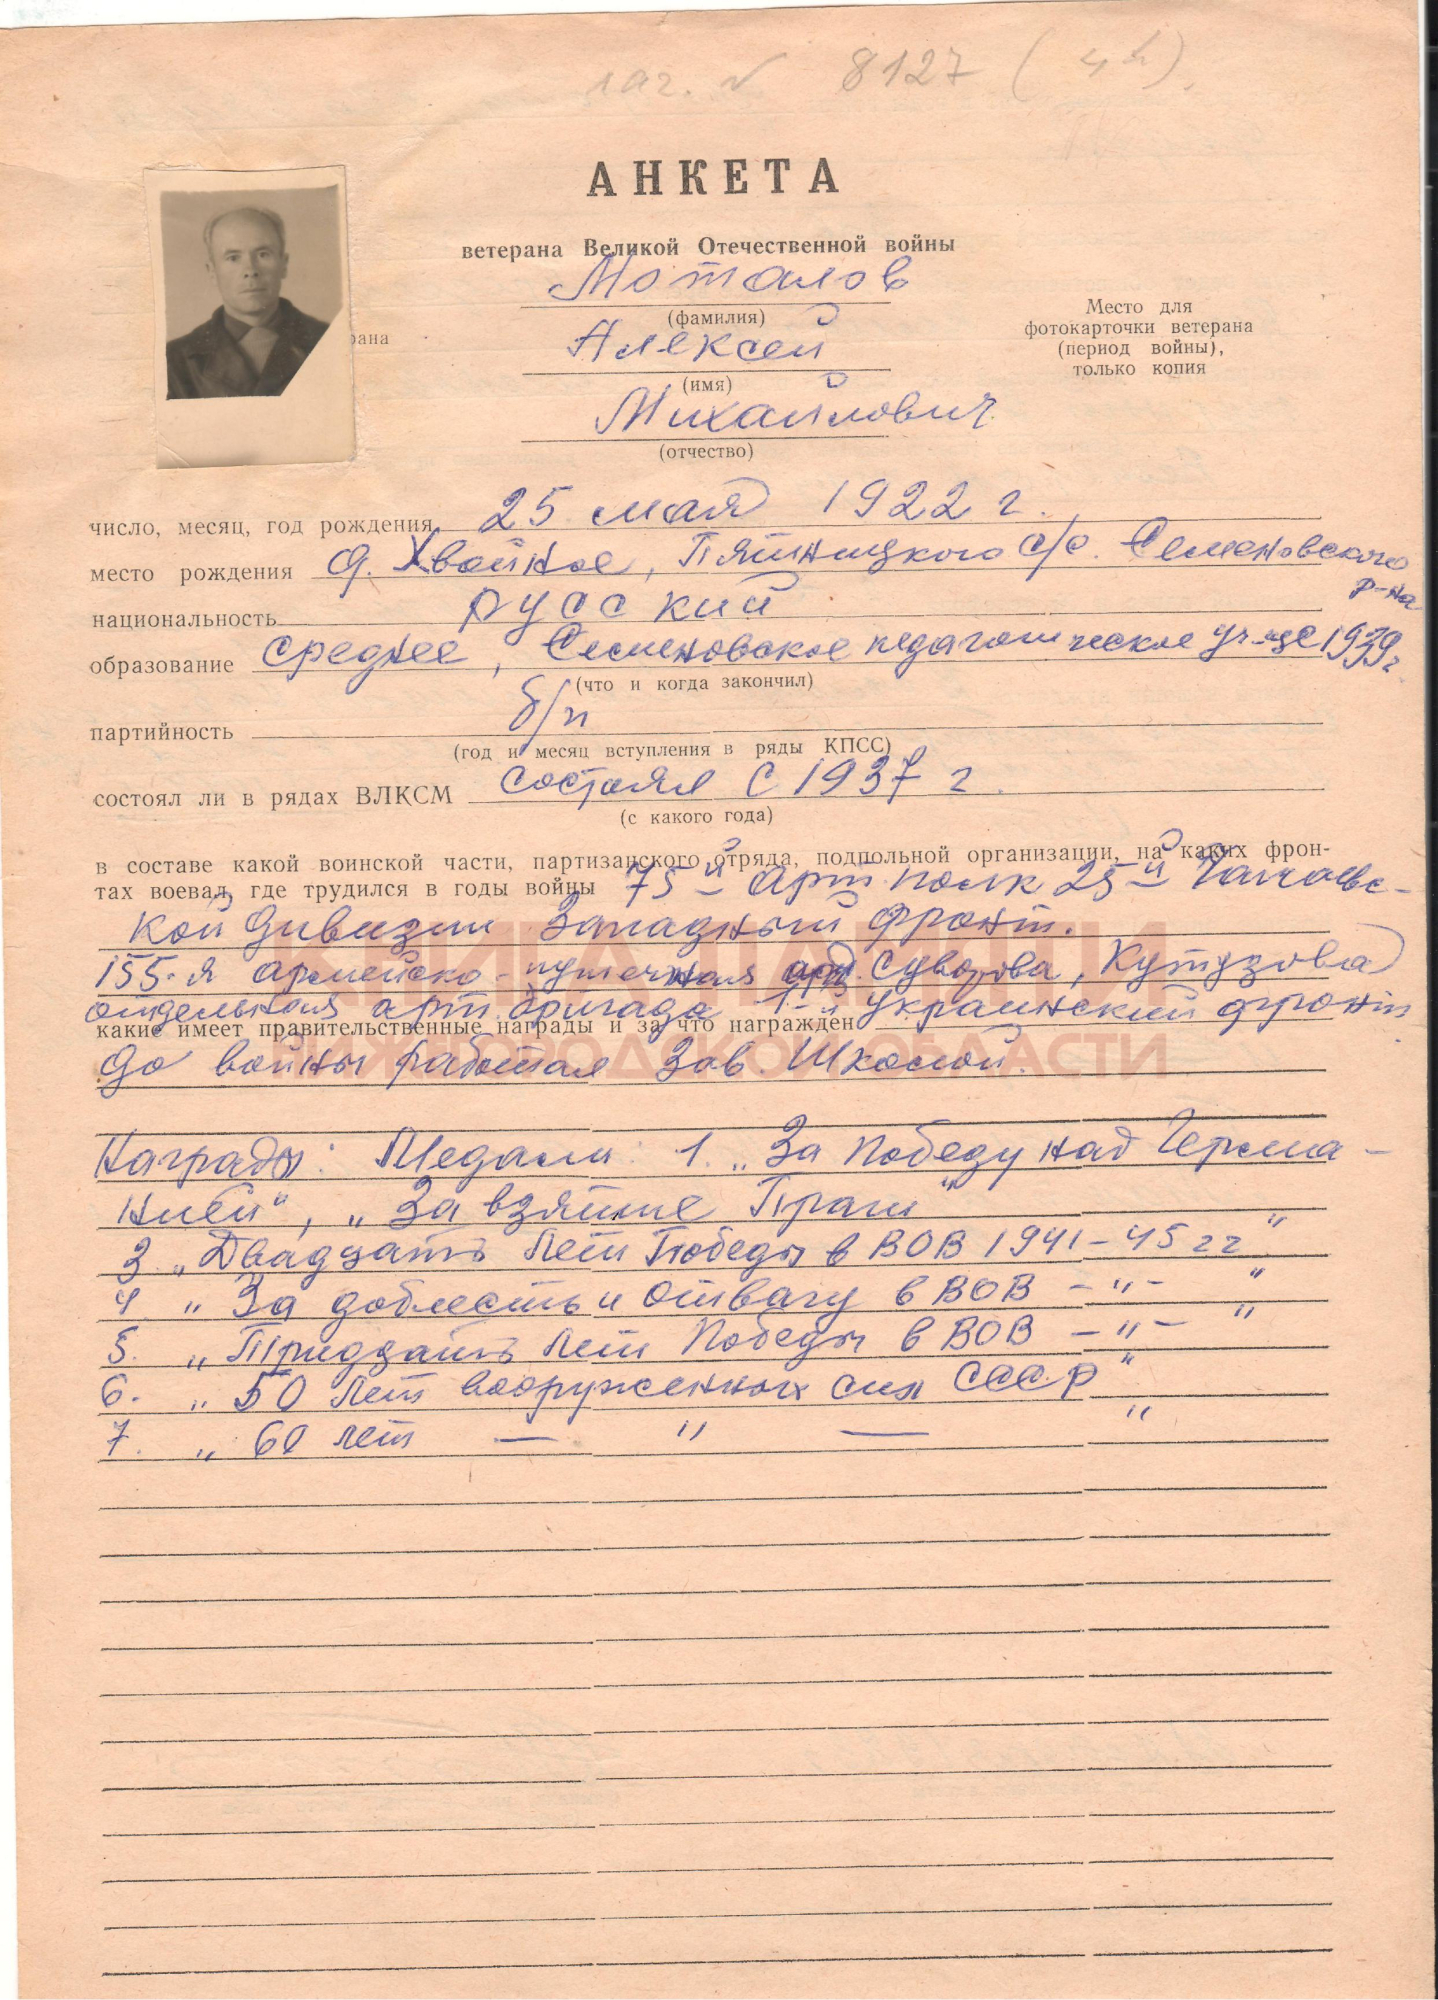 8127 (
АНКЕТА
ветерана Великой Отечественной войны
Моталов
(фамилия)
Место для
фотокарточки ветерана
(период войны),
только копия
рана
Алексей
(имя)
Михайлович
(отчество)
число, месяц, год рождения 25 мая 1922 г.
место рождения д. Хвойное, Пятницкого с/с. Семеновского
р-на
национальность русский
образование среднее, Семеновское педагогическое уч-ще 1939 г.
(что и когда закончил)
партийность б/п
(год и месяц вступления в ряды КПСС)
состоял ли в рядах ВЛКСМ состоял с 1937 г.
(с какого года)
в составе какой воинской части, партизанского отряда, подпольной организации, на каких фрон-
тах воевал, где трудился в годы войны 75-й арт. полк 25-й Чапаевс-
кой дивизии Западный фронт.
155-я армейско-пушечная орд. Суворова, Кутузова
отдельная арт. бригада 1-й украинский фронт.
какие имеет правительственные награды и за что награжден
До войны работал Зав. Школой.
КНИГА ПАМЯТИ
НИЖЕГОРОДСКОЙ ОБЛАСТИ
Награды: Медали 1. „За Победу над Герма-
нией“, „За взятие Праги“
3 „Двадцать лет Победы в ВОВ 1941-45 гг“
4 „За доблесть и отвагу в ВОВ -"- “
5. „Тридцать лет Победы в ВОВ -"- “
6. „50 лет вооруженных сил СССР“
7. „60 лет — " — “